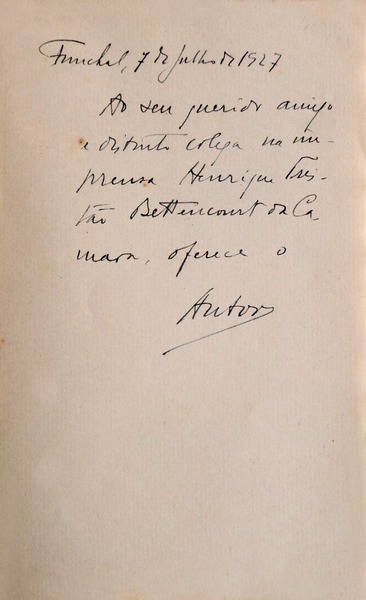 Funchal, 7 de Julho de 1927
Ao seu querido amigo
e distinto colega na im-
prensa Henrique Tris-
tão Bettencourt da Ca-
mara, oferece o
Autor